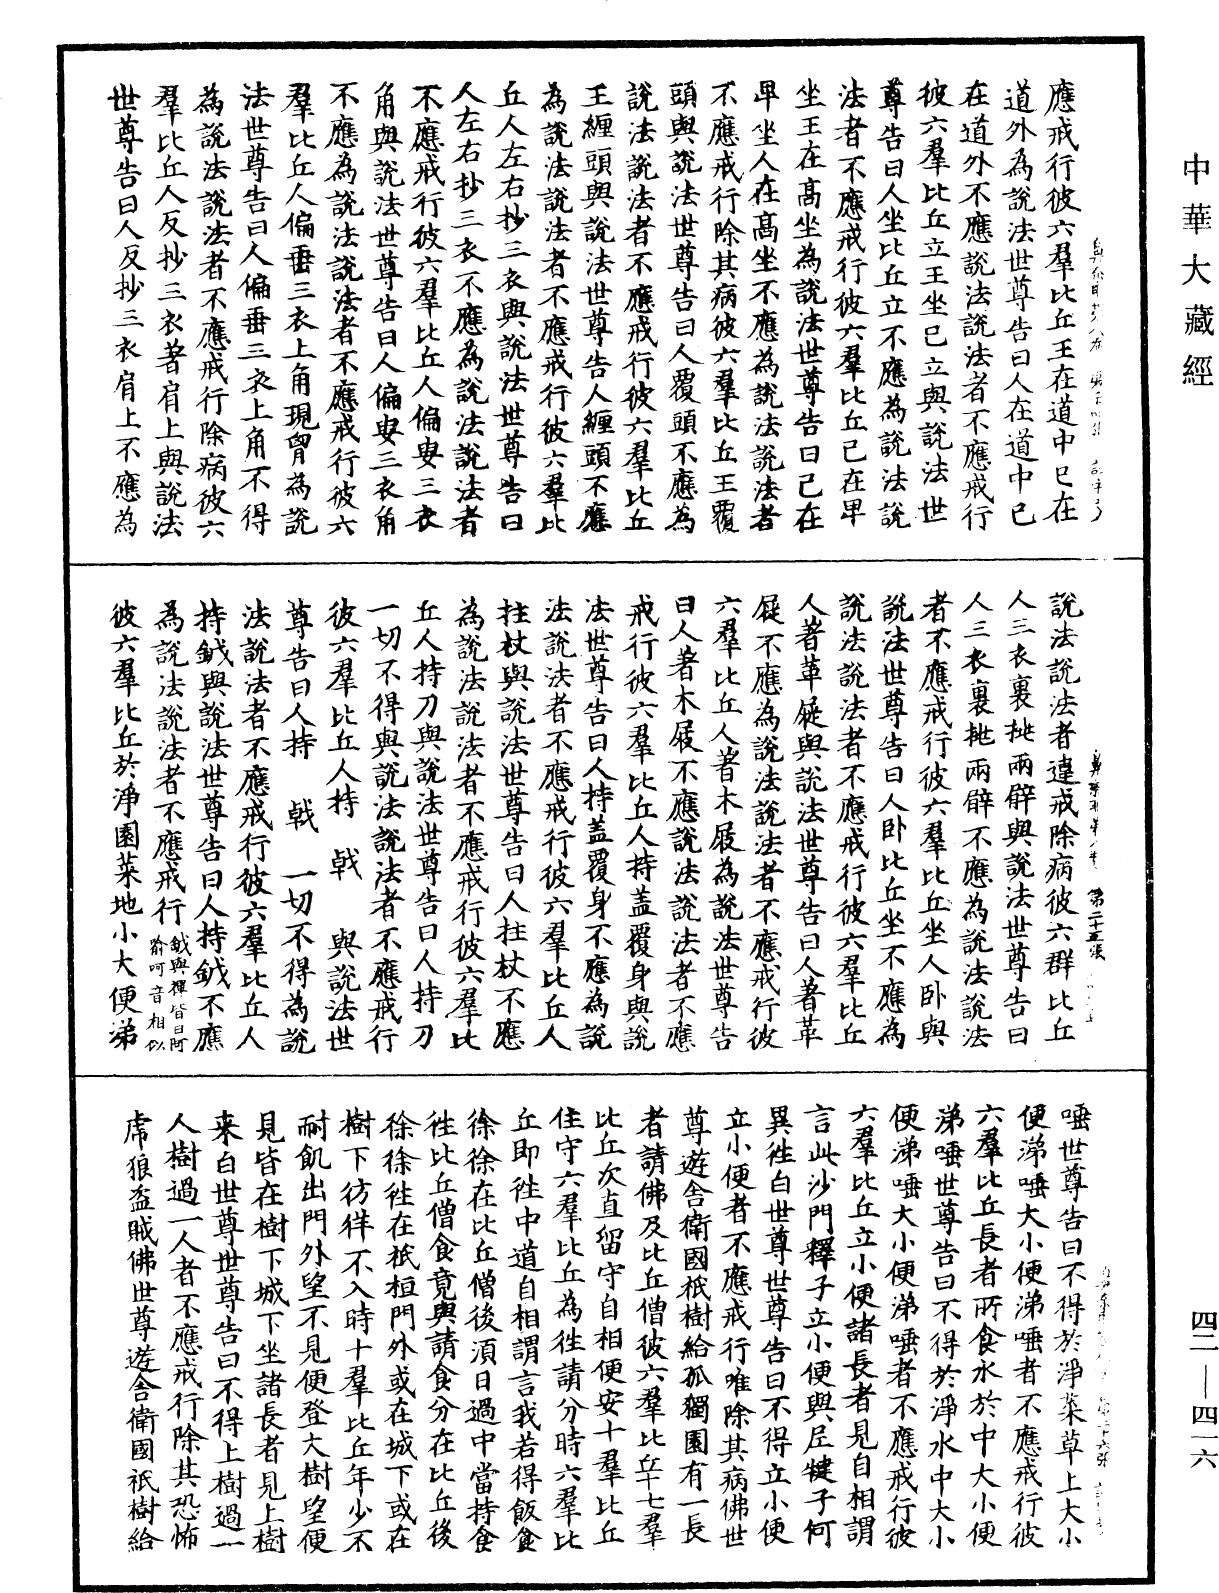 中華大藏經
應戒行彼六羣比丘王在道中已在
道外為說法世尊告曰人在道中已
在道外不應說法說法者不應戒行
彼六羣比丘立王坐已立與說法世
尊告曰人坐比丘立不應為說法說
法者不應戒行彼六羣比丘已在卑
坐王在高坐為說法世尊告曰已在
卑坐人在高坐不應為說法說法者
不應戒行除其病彼六羣比丘王覆
頭與說法世尊告曰人覆頭不應為
說法說法者不應戒行彼六羣比丘
王纏頭與說法世尊告人纏頭不應
為說法說法者不應戒行彼六羣比
丘人左右抄三衣與說法世尊告曰
人左右抄三衣不應為說法說法者
不應戒行彼六羣比丘人偏安三衣
角與說法世尊告曰人偏安三衣角
不應為說法說法者不應戒行彼六
羣比丘人偏垂三衣上角現胷為說
法世尊告曰人偏垂三衣上角不得
為說法說法者不應戒行除病彼六
羣比丘人反抄三衣著肩上與說法
世尊告曰人反抄三衣肩上不應為
說法說法者違戒除病彼六群比丘
人三衣裹拋兩臂與說法世尊告曰
人三衣裹拋兩臂不應為說法說法
者不應戒行彼六羣比丘坐人卧與
說法世尊告曰人卧比丘坐不應為
說法說法者不應戒行彼六羣比丘
人著革屣與說法世尊告曰人著革
屣不應為說法說法者不應戒行彼
六羣比丘人著木屐為說法世尊告
曰人著木屐不應說法說法者不應
戒行彼六羣比丘人持蓋覆身與說
法世尊告曰人持蓋覆身不應為說
法說法者不應戒行彼六羣比丘人
拄杖與說法世尊告曰人拄杖不應
為說法說法者不應戒行彼六羣比
丘人持刀與說法世尊告曰人持刀
一切不得與說法說法者不應戒行
彼六羣比丘人持 戟 與說法世
尊告曰人持 戟 一切不得為說
法說法者不應戒行彼六羣比丘人
持鉞與說法世尊告曰人持鉞不應
為說法說法者不應戒行鉞與禪皆曰阿
彼六羣比丘於淨園菜地小大便涕
唾世尊告曰不得於淨菜草上大小
便涕唾大小便涕唾者不應戒行彼
六羣比丘長者所食水於中大小便
涕唾世尊告曰不得於淨水中大小
便涕唾大小便涕唾者不應戒行彼
六羣比丘立小便諸長者見自相謂
言此沙門釋子立小便與尼犍子何
異徃白世尊世尊告曰不得立小便
立小便者不應戒行唯除其病佛世
尊遊舍衛國祇樹給孤獨園有一長
者請佛及比丘僧彼六羣比丘十七羣
比丘次直留守自相便安十羣比丘
住守六羣比丘為徃請分時六羣比
丘即徃中道自相謂言我若得飯食
徐徐在比丘僧後須日過中當持食
徃比丘僧食竟與請食分在比丘後
徐徐徃在祇桓門外或在城下或在
樹下彷徉不入時十羣比丘年少不
耐飢出門外望不見便登大樹望便
見皆在樹下城下坐諸長者見上樹
来白世尊世尊告曰不得上樹過一
人樹過一人者不應戒行除其恐怖
虎狼盜賊佛世尊遊舍衛國祇樹給
四二—四一六